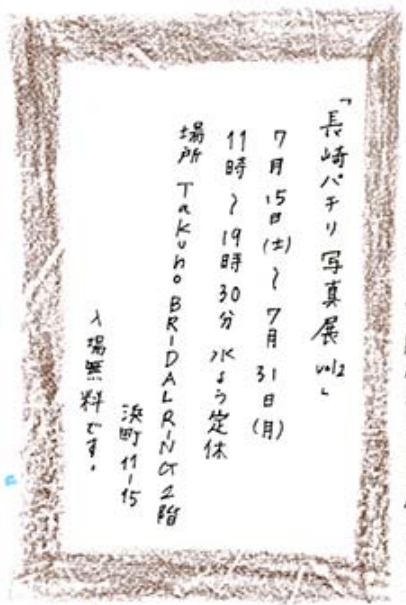 「長崎パチリ写真展 vol2」
7月15日(土)〜7月31日(月)
11時〜19時30分 水よう定休
場所 Takuho BRIDALRING2階
浜町11-15
入場無料です。